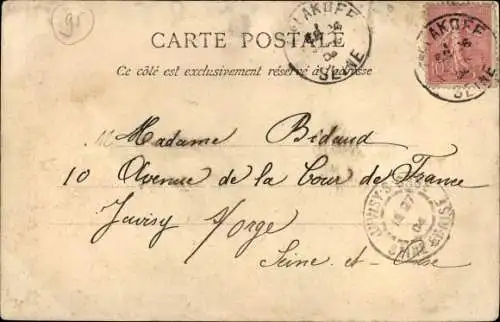 91
CARTE POSTALE
Ce côté est exclusivement réservé à l'adresse
MALAKOFF
SEINE
MALAKOFF
SEINE
Madame Bidaud
10 Avenue de la Cour de France
Juvisy s/orge
Seine et Oise